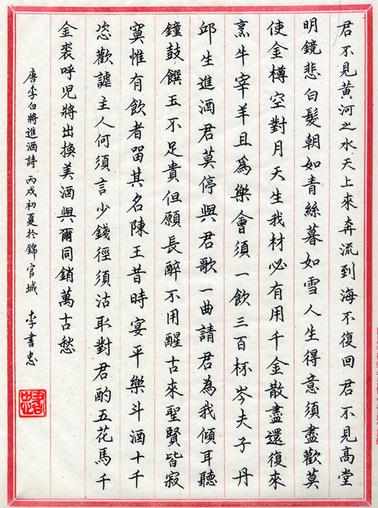 君不見黃河之水天上來奔流到海不復回君不見高堂
明鏡悲白髮朝如青絲暮如雪人生得意須盡歡莫
使金樽空對月天生我材必有用千金散盡還復來
烹牛宰羊且為樂會須一飲三百杯岑夫子丹
邱生進酒君莫停與君歌一曲請君為我傾耳聽
鐘鼓饌玉不足貴但願長醉不用醒古來聖賢皆寂
寞惟有飲者留其名陳王昔時宴平樂斗酒十千
恣歡謔主人何須言少錢徑須沽取對君酌五花馬千
金裘呼兒將出換美酒與爾同銷萬古愁
唐李白將進酒詩 丙戌初夏於錦官城 李書忠